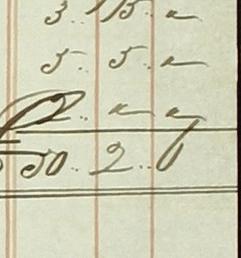 3.. 15.. "
5.. 5.. "
2.. " "
50.. 2.. 0